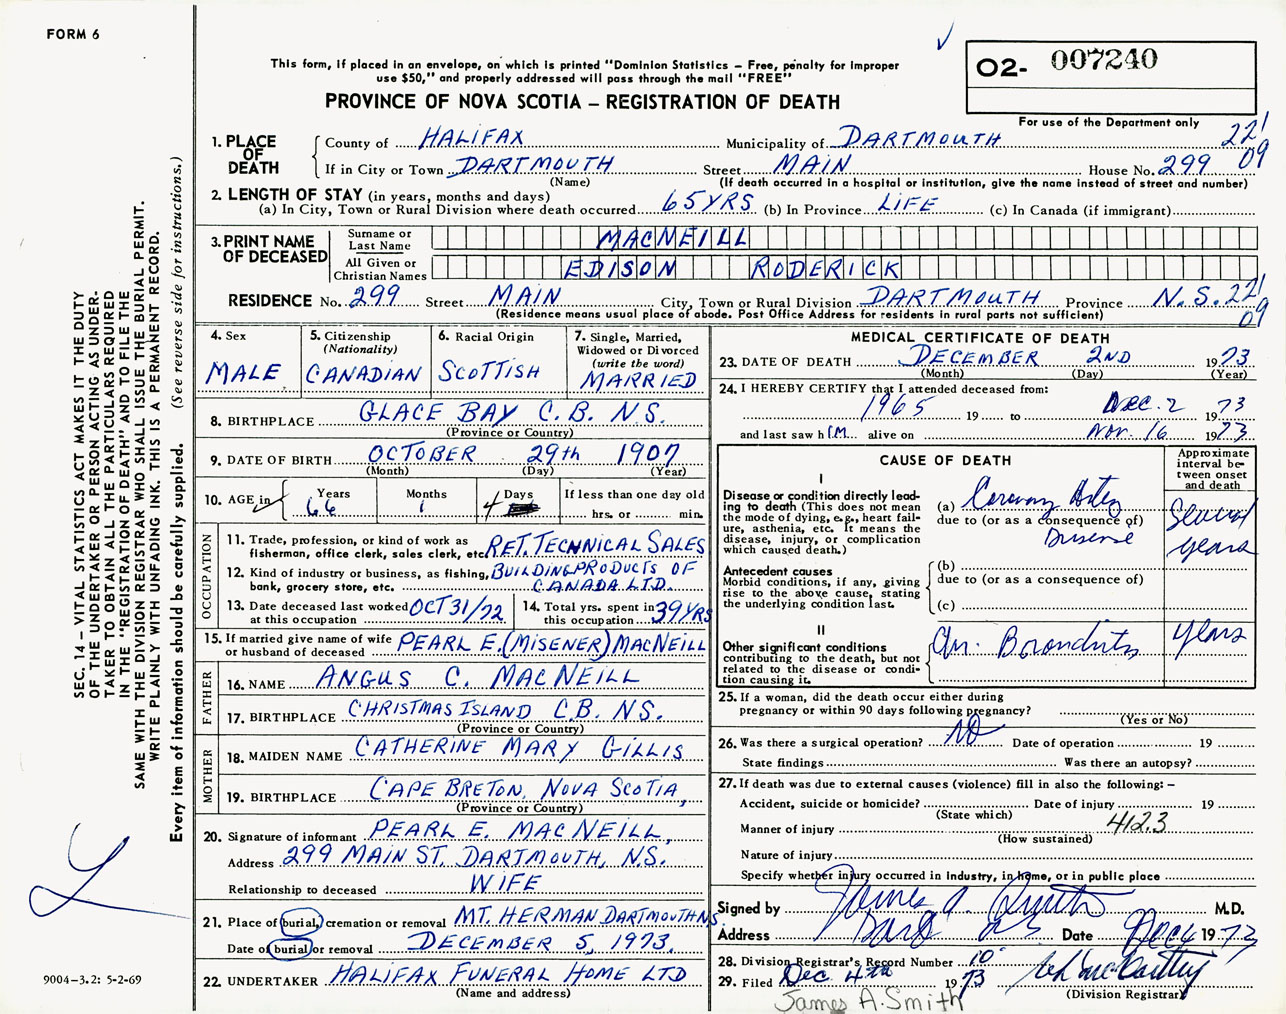 FORM 6
This form, if placed in an envelope, on which is printed "Dominion Statistics – Free, penalty for improper
use $50," and properly addressed will pass through the mail "FREE"
PROVINCE OF NOVA SCOTIA – REGISTRATION OF DEATH
O2- 007240
For use of the Department only
SEC. 14 – VITAL STATISTICS ACT MAKES IT THE DUTY
OF THE UNDERTAKER OR PERSON ACTING AS UNDER-
TAKER TO OBTAIN ALL THE PARTICULARS REQUIRED
IN THE "REGISTRATION OF DEATH" AND TO FILE THE
SAME WITH THE DIVISION REGISTRAR WHO SHALL ISSUE THE BURIAL PERMIT.
WRITE PLAINLY WITH UNFADING INK. THIS IS A PERMANENT RECORD.
Every item of information should be carefully supplied. (See reverse side for instructions.)
1. PLACE OF DEATH
County of HALIFAX Municipality of DARTMOUTH 221
If in City or Town DARTMOUTH Street MAIN House No. 299 09
(Name) (If death occurred in a hospital or institution, give the name instead of street and number)
2. LENGTH OF STAY (in years, months and days)
(a) In City, Town or Rural Division where death occurred 65 YRS (b) In Province LIFE (c) In Canada (if immigrant)
3. PRINT NAME OF DECEASED
Surname or Last Name MACNEILL
All Given or Christian Names EDISON RODERICK
RESIDENCE No. 299 Street MAIN City, Town or Rural Division DARTMOUTH Province N.S. 221
(Residence means usual place of abode. Post Office Address for residents in rural parts not sufficient) 09
4. Sex MALE
5. Citizenship (Nationality) CANADIAN
6. Racial Origin SCOTTISH
7. Single, Married, Widowed or Divorced (write the word) MARRIED
8. BIRTHPLACE GLACE BAY C.B. N.S.
(Province or Country)
9. DATE OF BIRTH OCTOBER 29th 1907
(Month) (Day) (Year)
10. AGE in Years 66 Months 1 Days 4 If less than one day old
hrs. or min.
OCCUPATION
11. Trade, profession, or kind of work as
fisherman, office clerk, sales clerk, etc. RET. TECHNICAL SALES
12. Kind of industry or business, as fishing, BUILDING PRODUCTS OF
bank, grocery store, etc. CANADA LTD.
13. Date deceased last worked at this occupation OCT 31/72
14. Total yrs. spent in this occupation 39 YRS
15. If married give name of wife
or husband of deceased PEARL E. (MISENER) MACNEILL
FATHER
16. NAME ANGUS C. MACNEILL
17. BIRTHPLACE CHRISTMAS ISLAND C.B. N.S.
(Province or Country)
MOTHER
18. MAIDEN NAME CATHERINE MARY GILLIS
19. BIRTHPLACE CAPE BRETON, NOVA SCOTIA,
(Province or Country)
20. Signature of informant PEARL E. MACNEILL,
Address 299 MAIN ST. DARTMOUTH, N.S.
Relationship to deceased WIFE
21. Place of burial, cremation or removal MT. HERMAN DARTMOUTH NS
Date of burial or removal DECEMBER 5, 1973.
22. UNDERTAKER HALIFAX FUNERAL HOME LTD
(Name and address)
MEDICAL CERTIFICATE OF DEATH
23. DATE OF DEATH DECEMBER 2ND 1973
(Month) (Day) (Year)
24. I HEREBY CERTIFY that I attended deceased from:
1965 19 to Dec. 2 1973
and last saw h IM alive on Nov. 16 1973
CAUSE OF DEATH
Approximate interval between onset and death
I
Disease or condition directly lead-
ing to death (This does not mean
the mode of dying, e.g., heart fail-
ure, asthenia, etc. It means the
disease, injury, or complication
which caused death.)
(a) Coronary Artery
due to (or as a consequence of)
Disease
Several years
Antecedent causes
Morbid conditions, if any, giving
rise to the above cause, stating
the underlying condition last.
(b)
due to (or as a consequence of)
(c)
II
Other significant conditions
contributing to the death, but not
related to the disease or condi-
tion causing it.
Chr. Bronchitis years
25. If a woman, did the death occur either during
pregnancy or within 90 days following pregnancy?
(Yes or No)
26. Was there a surgical operation? No Date of operation 19
State findings Was there an autopsy?
27. If death was due to external causes (violence) fill in also the following: –
Accident, suicide or homicide? Date of injury 19
(State which)
Manner of injury 412.3
(How sustained)
Nature of injury
Specify whether injury occurred in industry, in home, or in public place
Signed by James A. Smith M.D.
Address Dart NS Date Dec 4 1973
28. Division Registrar's Record Number 10
29. Filed Dec 4th 1973
(Division Registrar)
James A. Smith
9004–3.2: 5-2-69